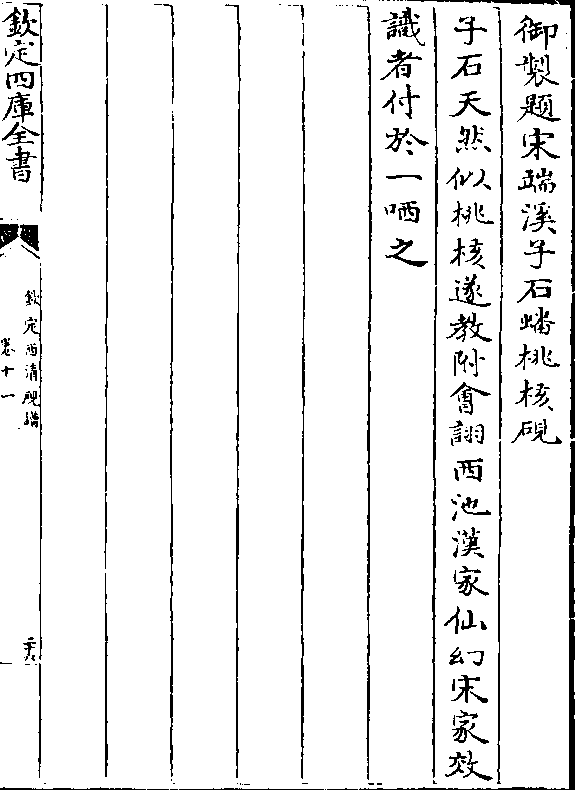 御製題宋端溪子石蟠桃核硯
子石天然似桃核遂教附會詡西池漢家仙幻宋家效
識者付於一哂之
欽定四庫全書
欽定西清硯譜
卷十一